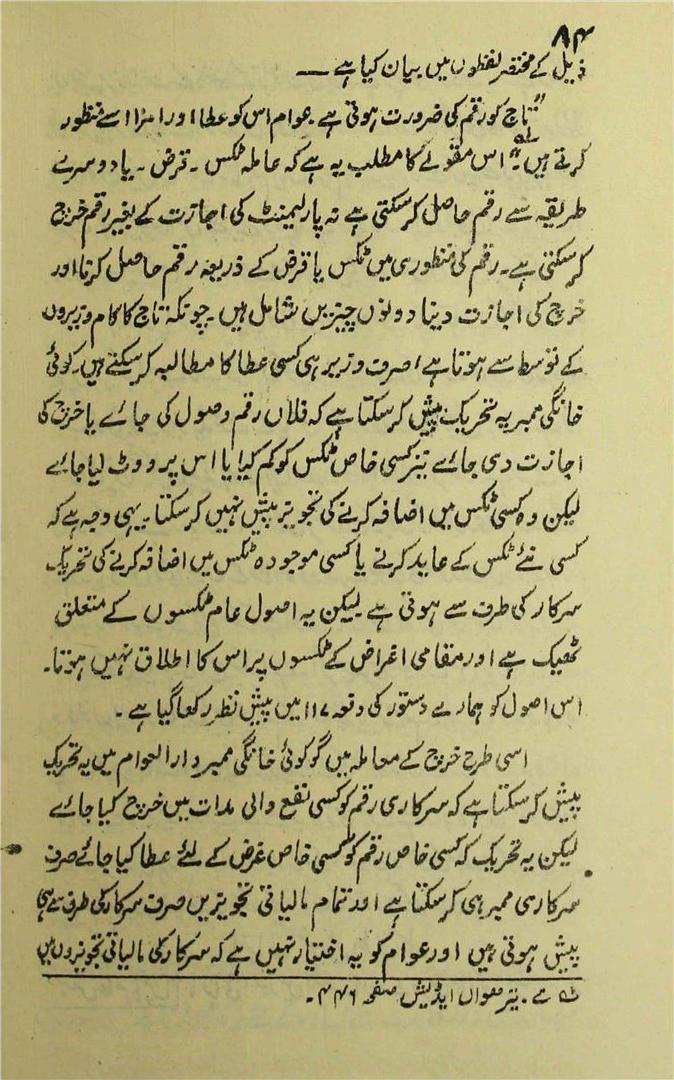 ۸۴
ذیل کے مختصر لفظوں میں بیان کیا ہے ——
"تاج کو رقم کی ضرورت ہوتی ہے۔ عوام اس کو عطا اور امرا اسے منظور
کرتے ہیں"۔ اس مقولے کا مطلب یہ ہے کہ عاملہ ٹکس۔ قرض۔ یا دوسرے
طریقہ سے رقم حاصل کرسکتی ہے نہ پارلیمنٹ کی اجازت کے بغیر رقم خرچ
کرسکتی ہے۔ رقم کی منظوری میں ٹکس یا قرض کے ذریعہ رقم حاصل کرنا اور
خرچ کی اجازت دینا دونوں چیزیں شامل ہیں۔ چونکہ تاج کا کام وزیروں
کے توسط سے ہوتا ہے اصرف وزیر ہی کسی عطا کا مطالبہ کرسکتے ہیں۔ کوئی
خانگی ممبر یہ تحریک پیش کرسکتا ہے کہ فلاں رقم وصول کی جائے یا خرچ کی
اجازت دی جائے نیز کسی خاص ٹکس کو کم کیا یا اس پر ووٹ لیا جائے
لیکن وہ کسی ٹکس میں اضافہ کرنے کی تجویز پیش نہیں کرسکتا۔ یہی وجہ ہے کہ
کسی نئے ٹکس کے عاید کرنے یا کسی موجودہ ٹکس میں اضافہ کرنے کی تحریک
سرکار کی طرف سے ہوتی ہے لیکن یہ اصول عام ٹکسوں کے متعلق
ٹھیک ہے اور مقامی اغراض کے ٹکسوں پر اس کا اطلاق نہیں ہوتا۔
اس اصول کو ہمارے دستور کی دفعہ ۱۱۷ میں پیش نظر رکھا گیا ہے۔
اسی طرح خرچ کے معاملہ میں گو کوئی خانگی ممبر دارالعوام میں یہ تحریک
پیش کرسکتا ہے کہ سرکاری رقم کو کسی نفع والی مدات میں خرچ کیا جائے
لیکن یہ تحریک کہ کسی خاص رقم کو کسی خاص غرض کے لئے عطا کیا جائے صرف
سرکاری ممبر ہی کرسکتا ہے اور تمام مالیاتی تجویزیں صرف سرکار کی طرف سے ہی
پیش ہوتی ہیں اور عوام کو یہ اختیار نہیں ہے کہ سرکار کی مالیاتی تجویزوں میں
مے۔ تیرھواں ایڈیشن صفحہ ۴۴۶۔